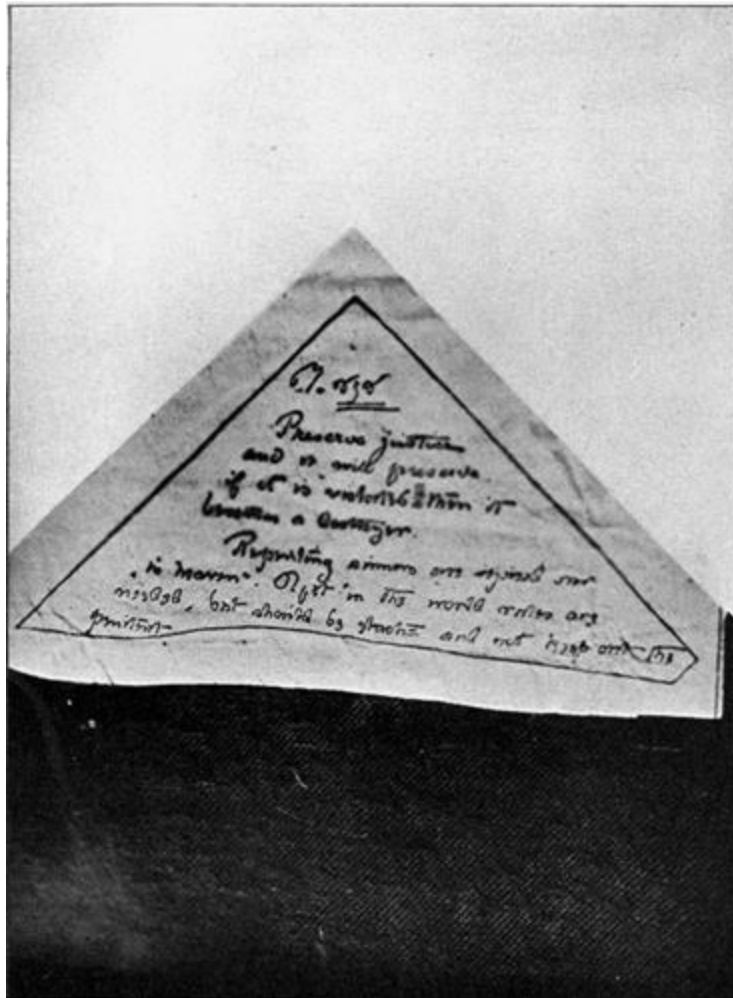 Preserve justice
and it will preserve
if it is violated then it
becomes a destroyer.
Repenting sinners are rejoiced over
"in heaven". Right in the world rules are
needed, but should be and not keep out the
penitent